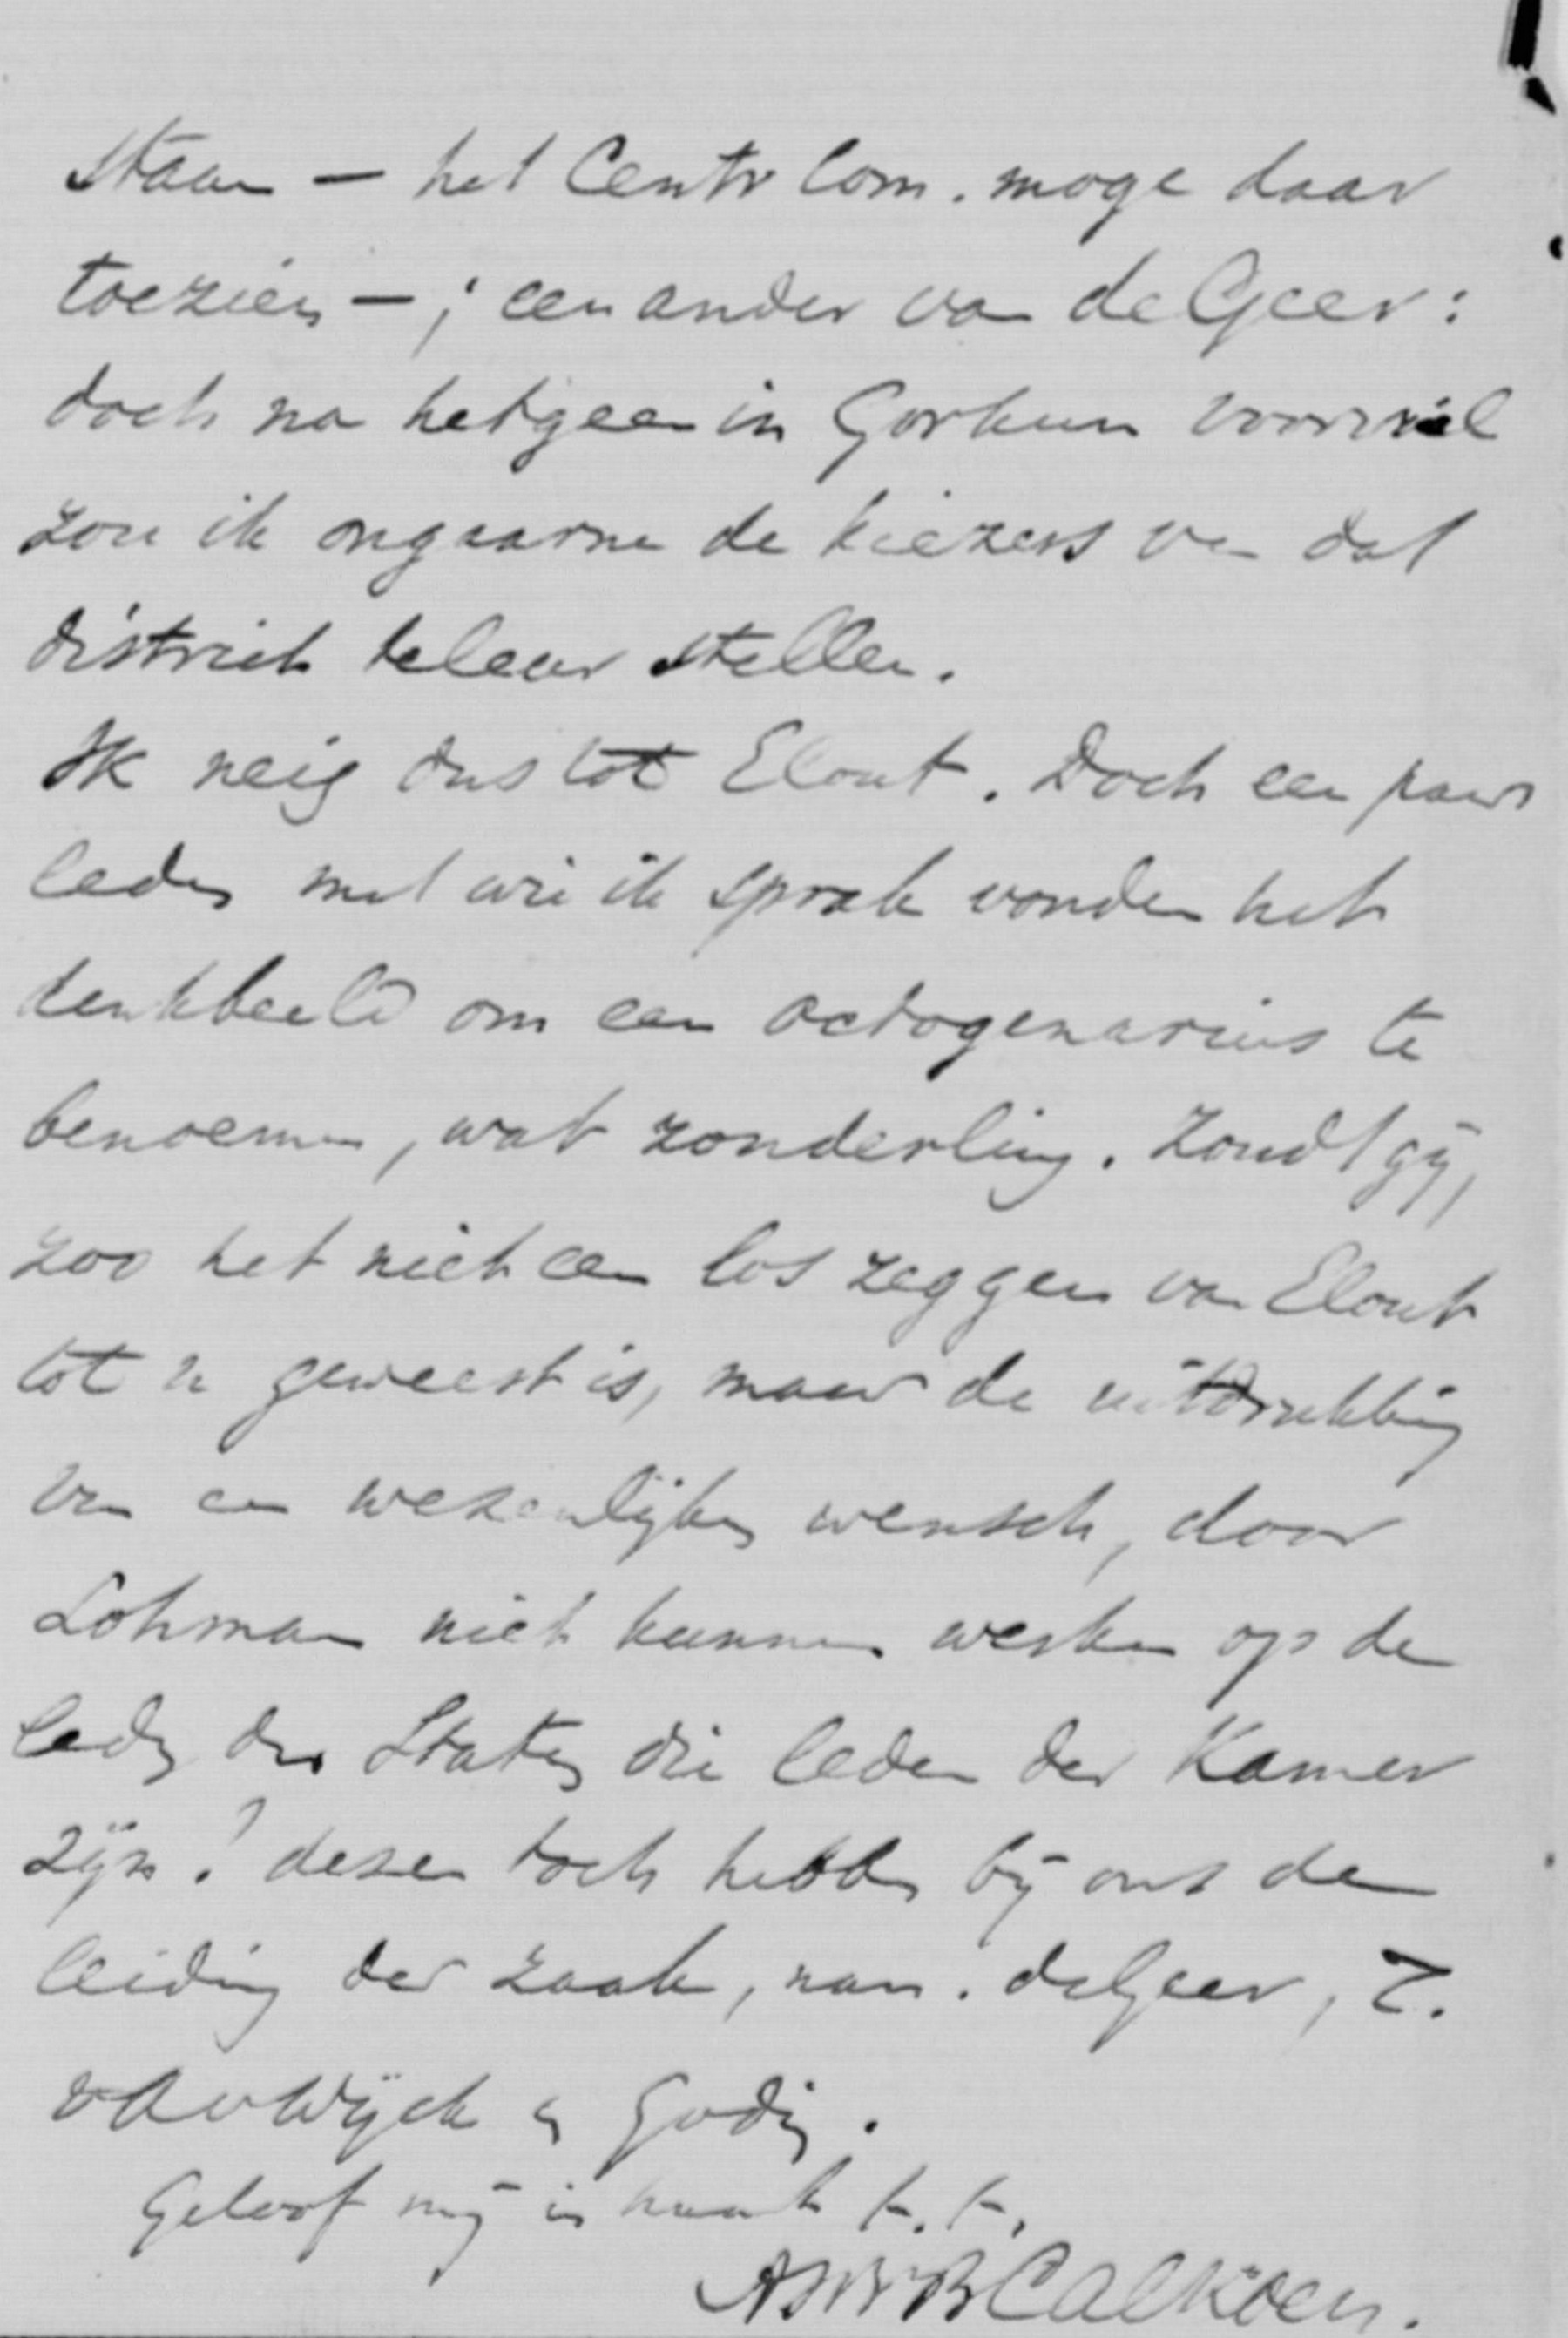 staan – het Centr Com. moge daar
toezien –; een ander van de Geer:
doch na hetgeen in Gorkum voorviel
zou ik ongaarne de kiezers van dat
district teleur stellen.
Ik neig dus tot Elout. Doch een paar
leden met wie ik sprak vonden het
denkbeeld om een octogenarius te
benoemen, wat zonderling. Zoudt gij,
zoo het niet een los zeggen van Elout
tot u geweest is, maar de uitdrukking
van een wezenlijken wensch, door
Lohman niet kunnen werken op de
leden der Staten die leden der Kamer
zijn? dezen toch hebben bij ons de
leiding der zaak, nam. de Geer, Z.
v Wijck en Godin.
Geloof mij in haast t.t.
Calkoen.